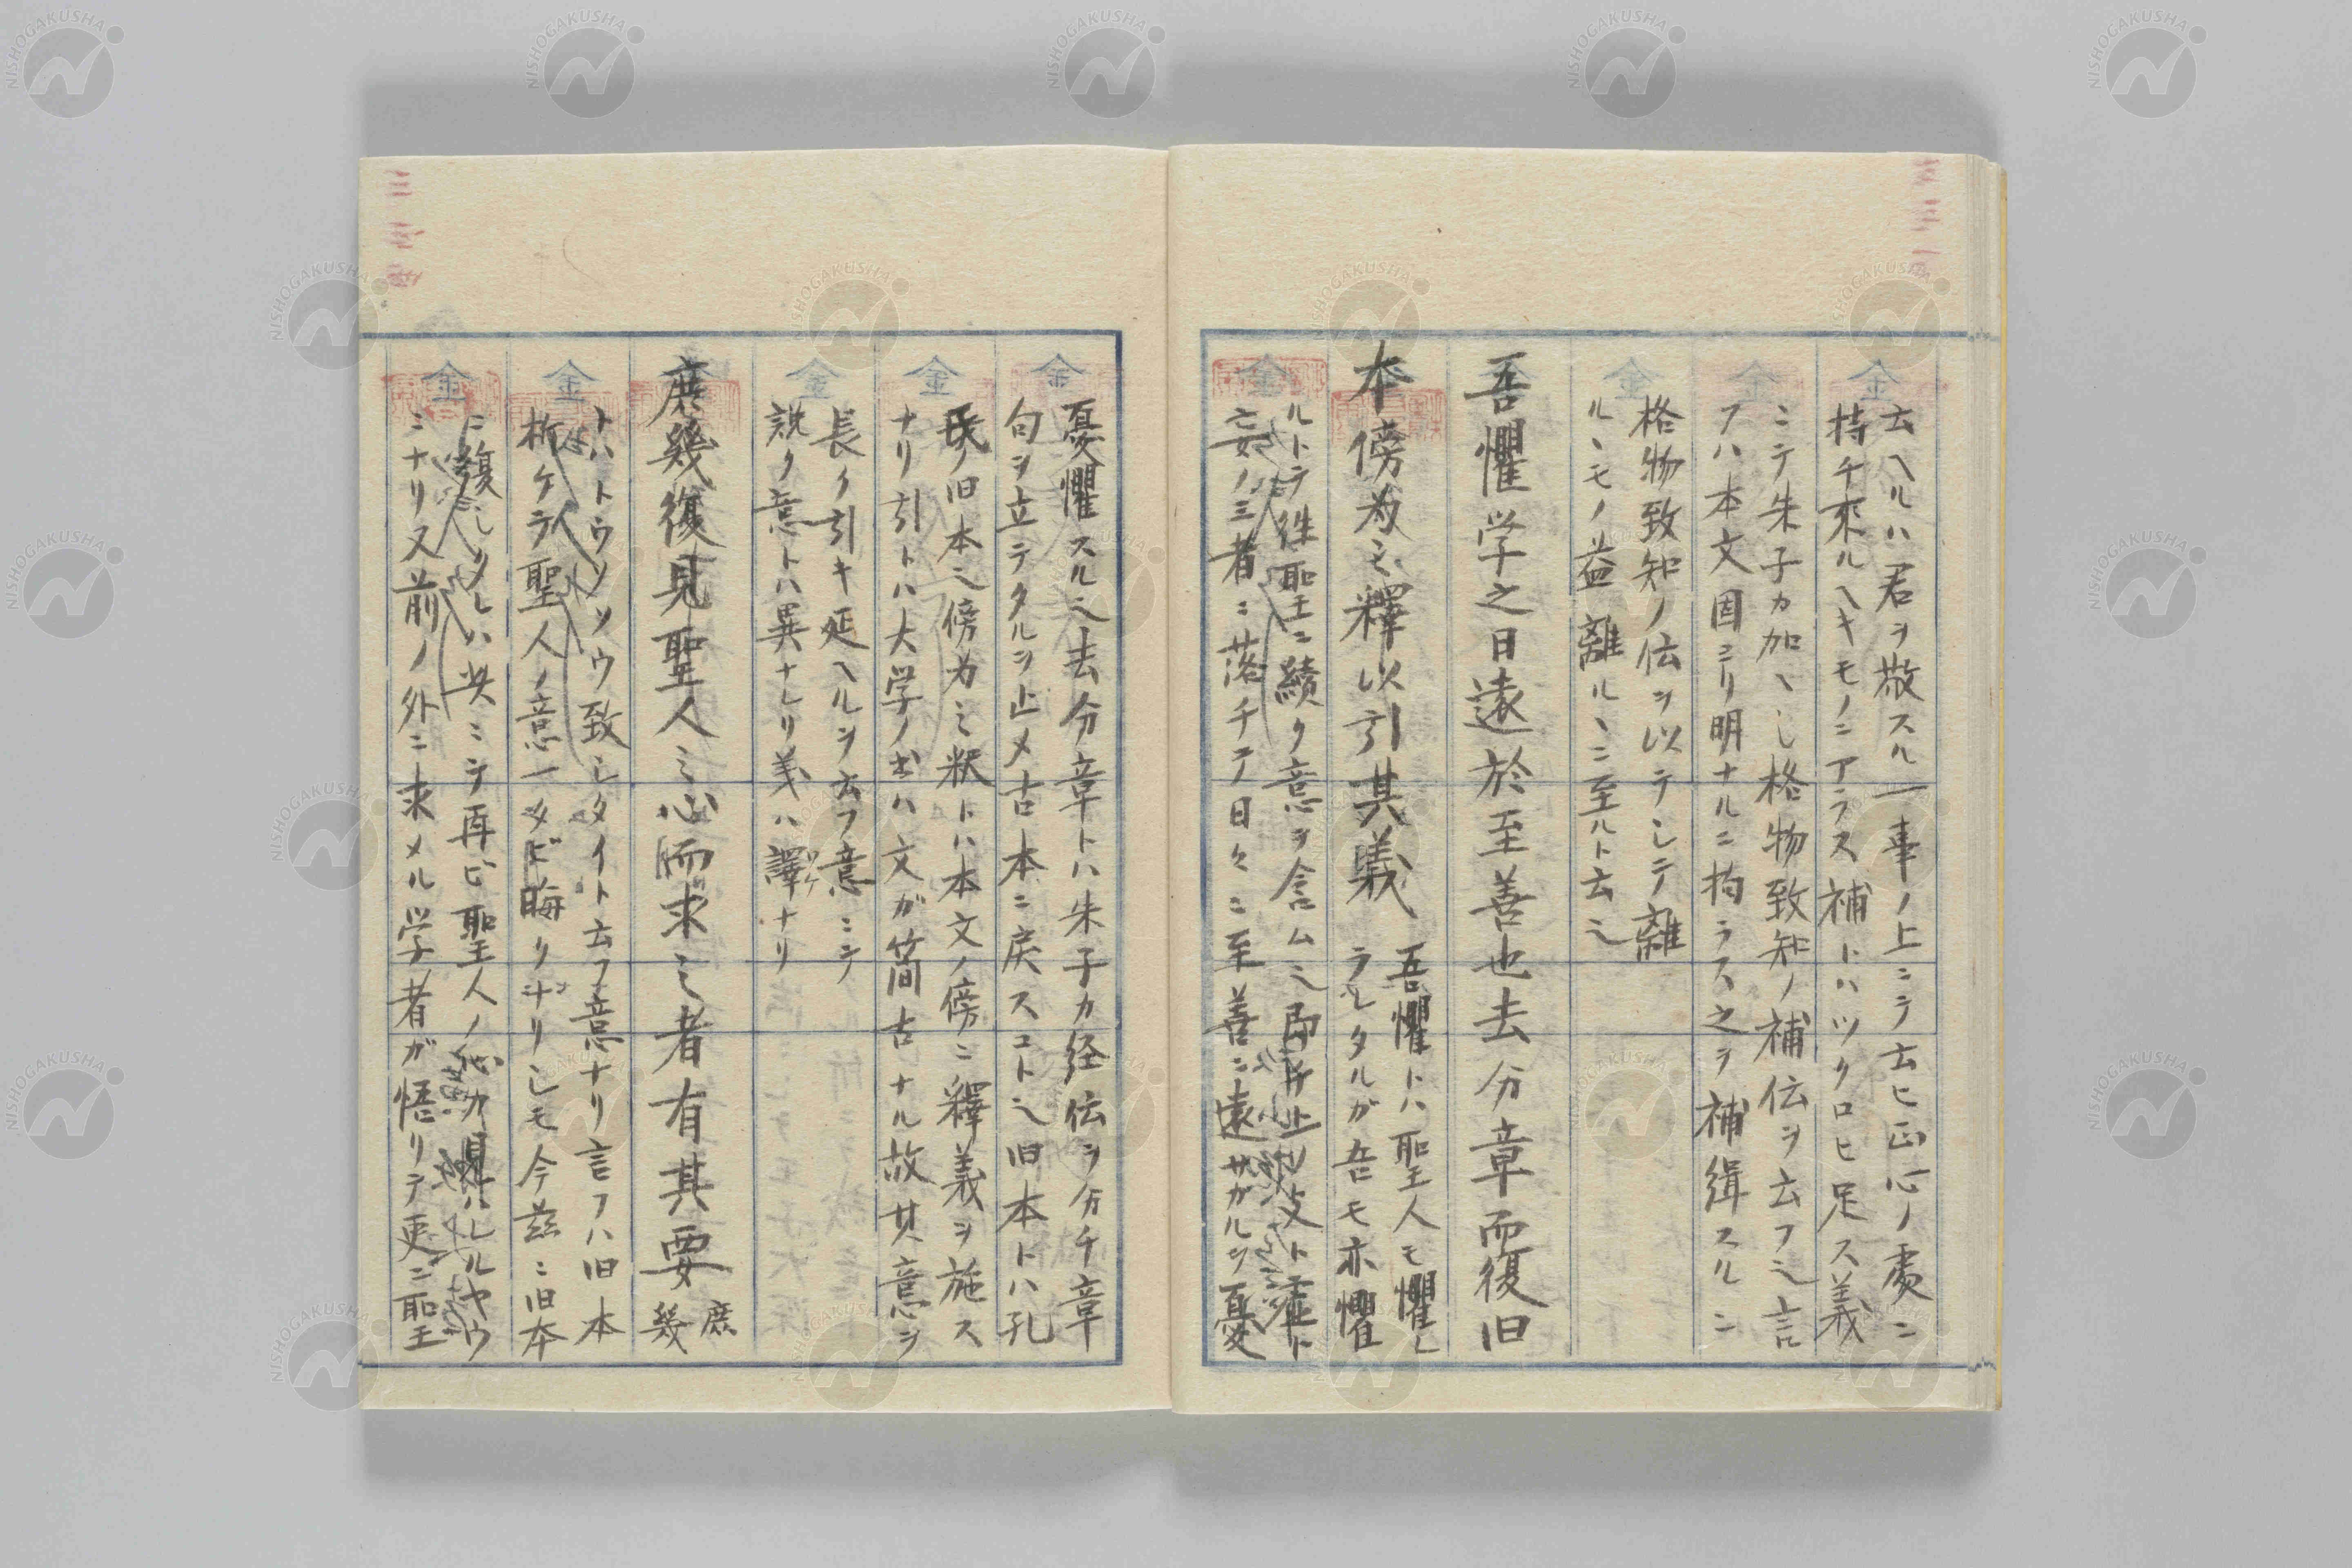 云ヘルハ君ヲ敬スル一事ノ上ニテ云ヒ正心ノ處ニ
持チ來ルヘキモノニアラス補トハツクロヒ足ス義
ニテ朱子カ加ヘシ格物致知ノ補伝ヲ云フ也言
フハ本文固ヨリ明ナルニ拘ラス之ヲ補緝スルニ
格物致知ノ伝ヲ以テシテ離
ルヽモノ益離ルヽニ至ルト云也
吾懼学之日遠於至善也去分章而復旧
本傍為之釋以引其義
吾懼トハ聖人モ懼レ
ラレタルガ吾モ亦懼
ルトテ往聖ニ績ク意ヲ含ム也
妄ノ三者ニ落チテ日々ニ至善ニ遠サガルヲ憂
憂懼スル也去分章トハ朱子カ経伝ヲ分チ章
句ヲ立テタルヲ止メ古本ニ戻スコト也旧本トハ孔
氏ノ旧本也傍為之釈トハ本文ノ傍ニ釋義ヲ施ス
ナリ引トハ大学ノ書ハ文ガ簡古ナル故其意ヲ
長ク引キ延ヘルヲ云フ意ニテ
説ク意トハ異ナレリ義ハ譯ナリ
ワケ
庶幾復見聖人之心而求之者有其要
庶
幾
トハトウゾソウ致シタイト云フ意ナリ言フハ旧本
析ケテ聖人ノ意一タビ晦クナリシモ今茲ニ旧本
ニ復シタレハ共ニテ再ビ聖人ノ心カ見ハレルヤウ
ニナリ又前ノ外ニ求メル学者ガ悟リテ更ニ聖